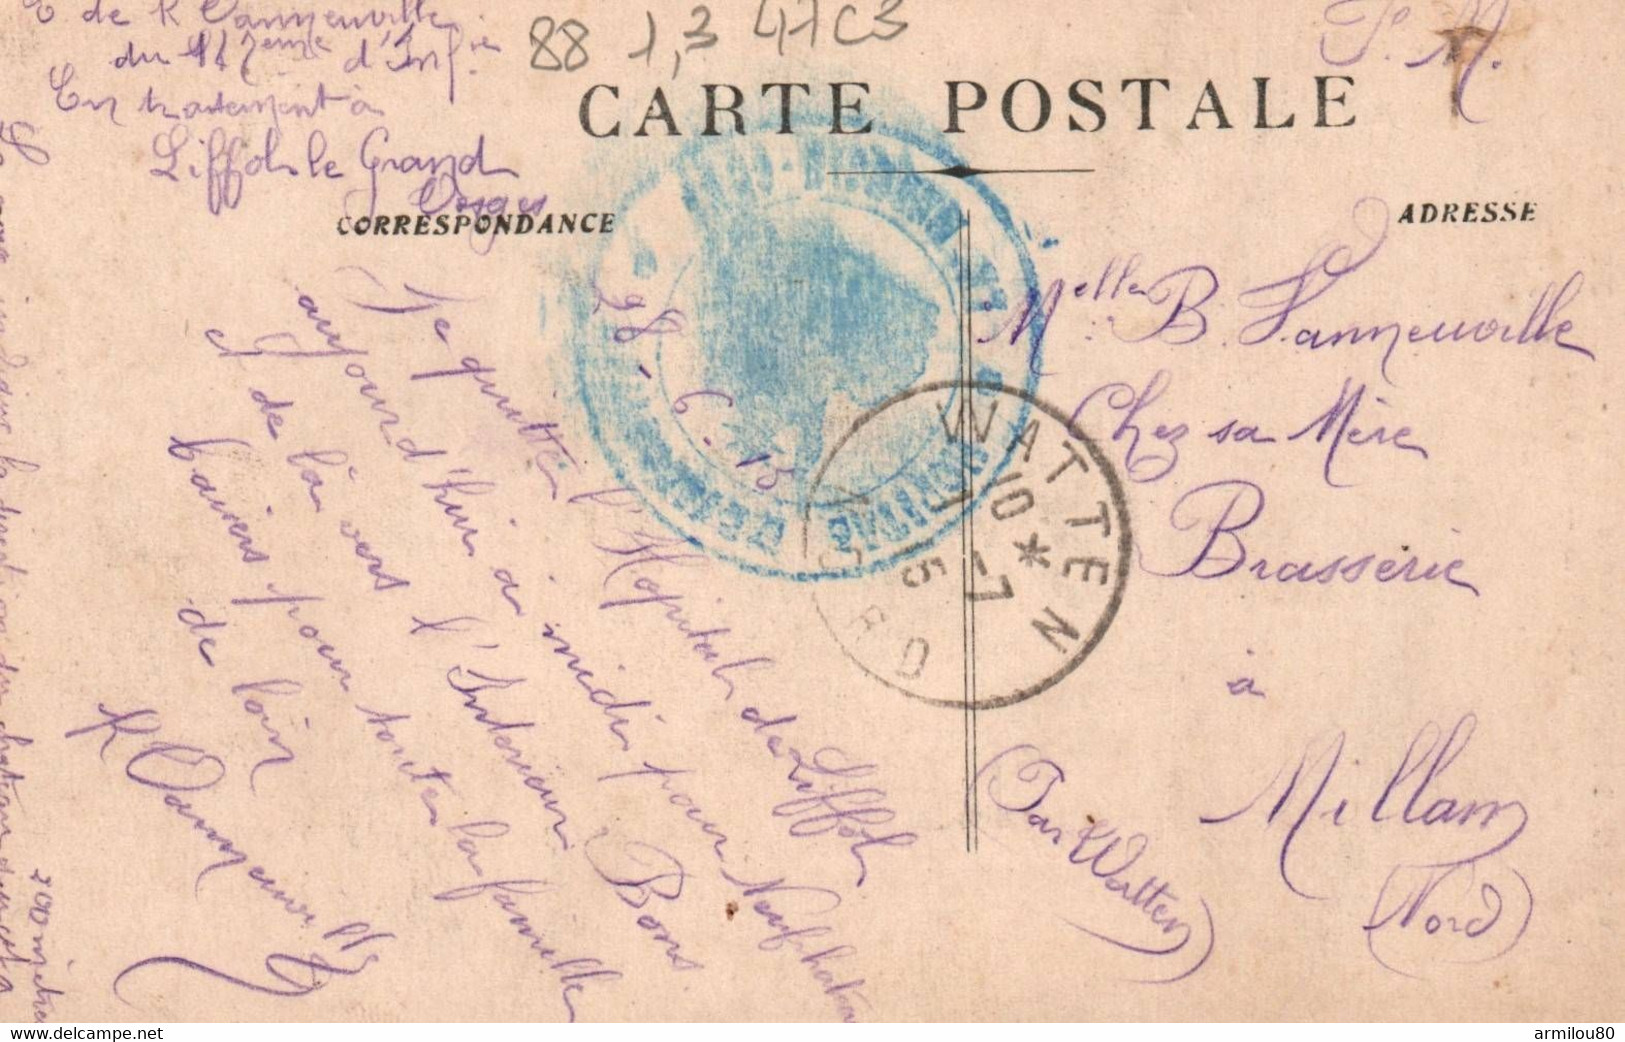 E de R Vanneuville
du 147ème d'Inf.ie
En traitement à
Liffol le Grand
Vosges
88 1,3 47C3
S. M.
CARTE POSTALE
CORRESPONDANCE
ADRESSE
28. 6. 15
Je quitte l'Hopital de Liffol
aujourd'hui à midi pour Neufchateau
et de là vers l'Intérieur. Bons
baisers pour toute la famille
de loin
R Vanneuville
indique la direction du chateau
200 mètres
Melle B. Vanneuville
Chez sa Mère
Brasserie
à
Millam
(Par Watten)
(Nord)
WATTEN
10 *
1 -7
15
NORD
www.delcampe.net
armilou80